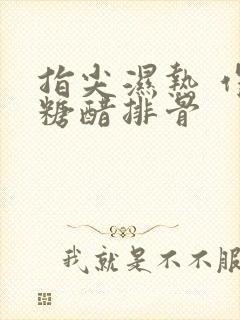 指尖濕熱
糖醋排骨
我就是不不服